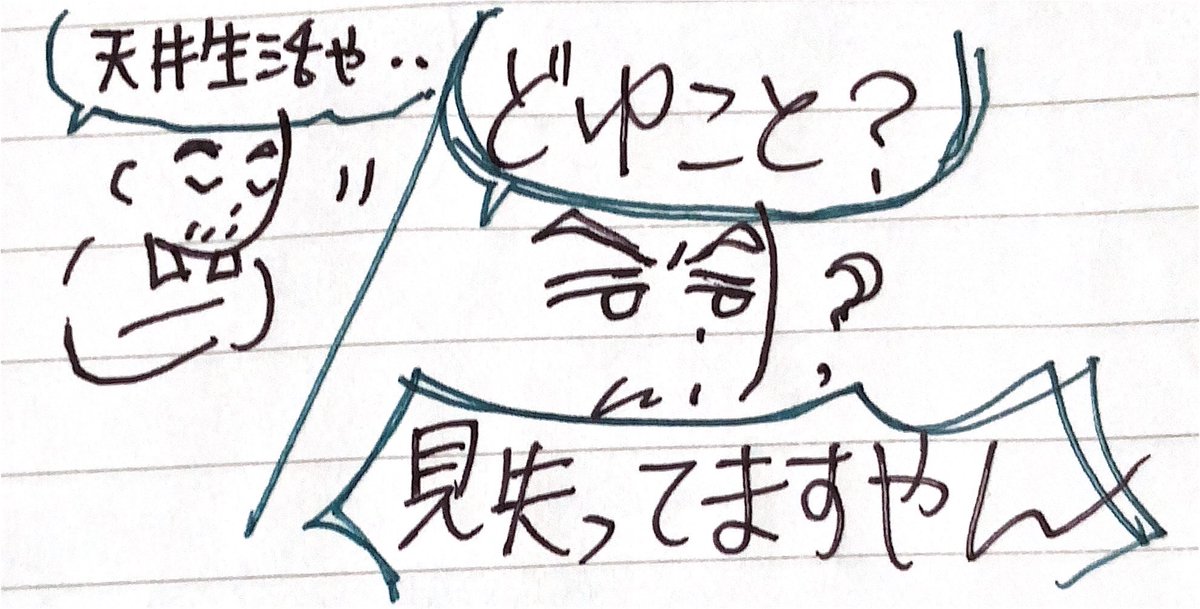 天井生活や‥
どゆこと？
見失ってますやん